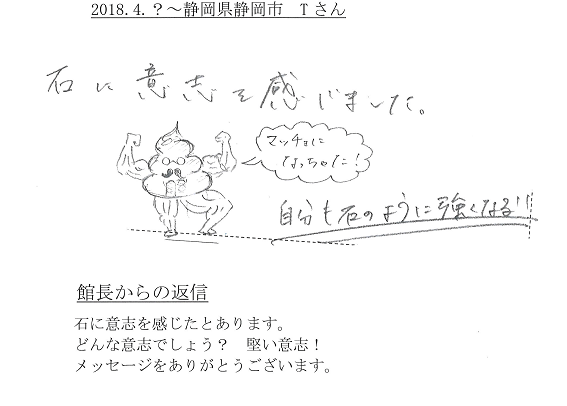 2018.4.?～静岡県静岡市　Tさん
石に意志を感じました。
マッチョに
なっちゃた！
自分も石のように強くなる!!
館長からの返信
石に意志を感じたとあります。
どんな意志でしょう？　堅い意志！
メッセージをありがとうございます。